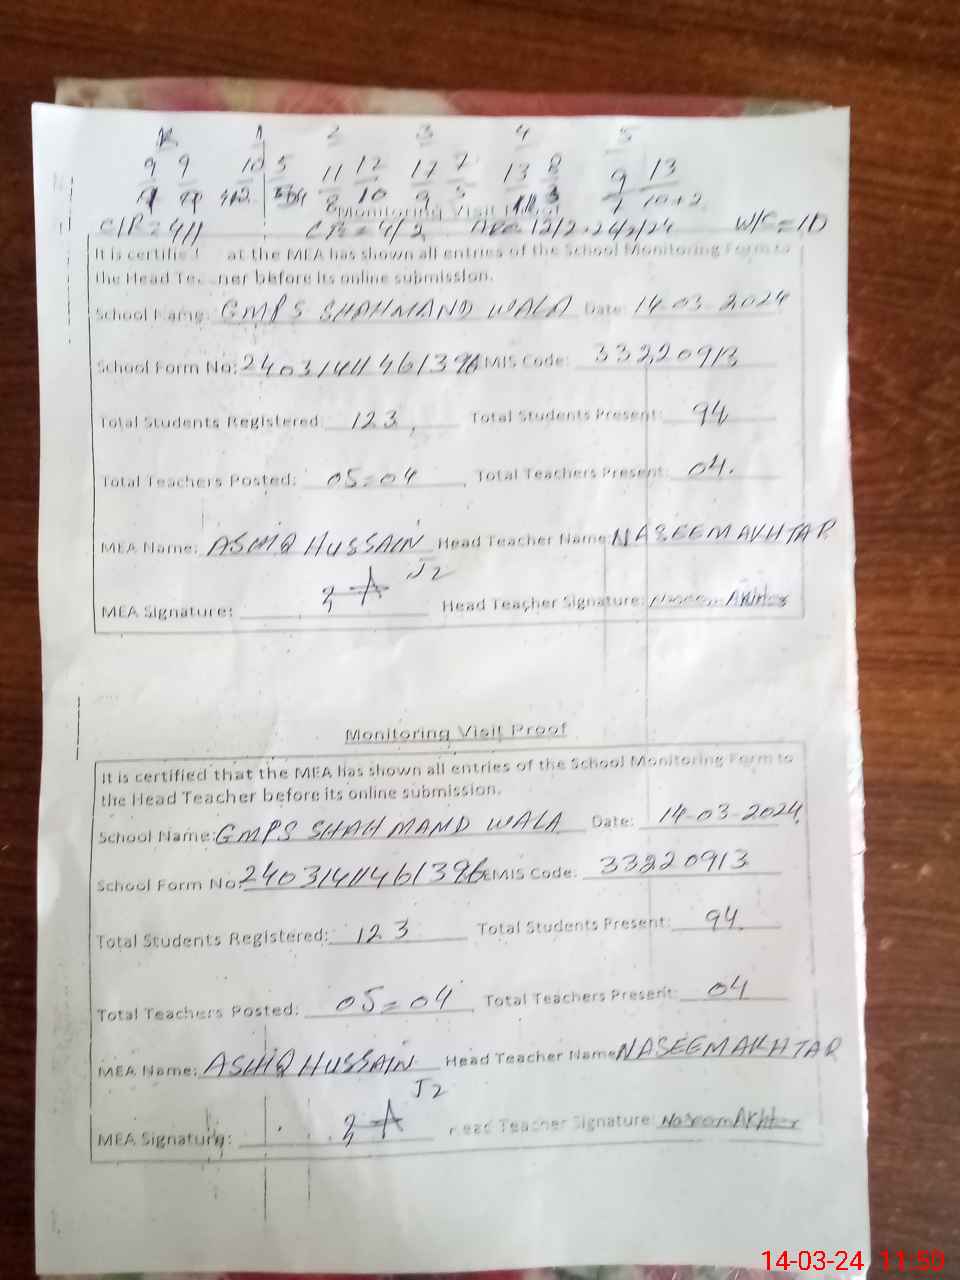 1 2 3 4 5
9 9 10 5 11 12 17 7 13 8 9 13
8 10 9 5 7 10+2
Monitoring Visit Proof
C/R=4/2 W/C=10
It is certified at the MEA has shown all entries of the School Monitoring Form to
the Head Teacher before its online submission.
School Name: GMPS SHAHMAND WALA Date: 14-03-2024
School Form No: 24031411461396 EMIS Code: 33220913
Total Students Registered: 123 Total Students Present: 94
Total Teachers Posted: 05=04 Total Teachers Present: 04.
MEA Name: ASHIQ HUSSAIN Head Teacher Name: NASEEM AKHTAR
J2
MEA Signature: Head Teacher Signature: Naseem Akhter
Monitoring Visit Proof
It is certified that the MEA has shown all entries of the School Monitoring Form to
the Head Teacher before its online submission.
School Name: GMPS SHAHMAND WALA Date: 14-03-2024
School Form No: 24031411461396 EMIS Code: 33220913
Total Students Registered: 123 Total Students Present: 94
Total Teachers Posted: 05=04 Total Teachers Present: 04
MEA Name: ASHIQ HUSSAIN Head Teacher Name: NASEEM AKHTAR
J2
MEA Signature: Head Teacher Signature: Naseem Akhter
14-03-24 11:50